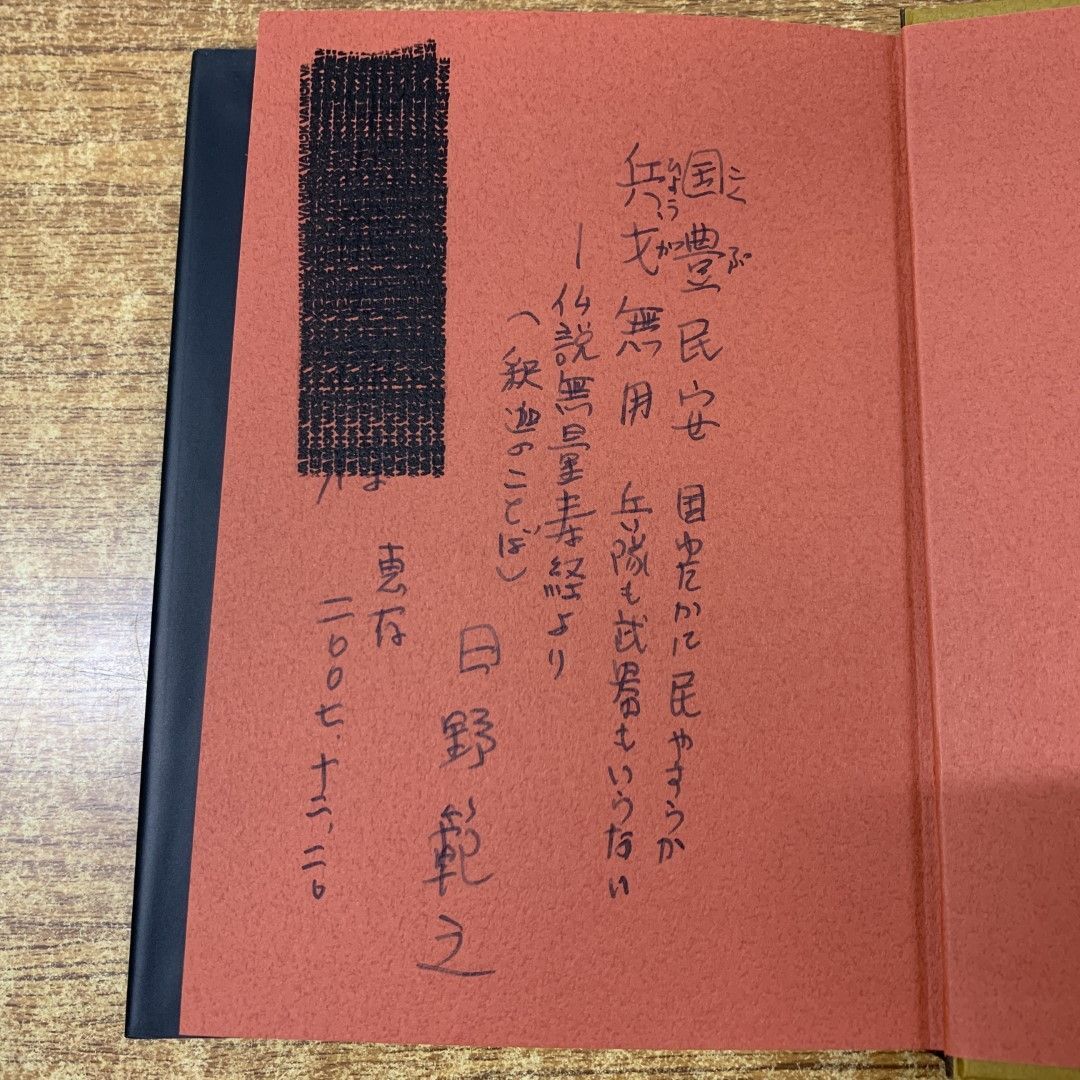 国豊民安 国ゆたかに民やすらか
こく ぶ
兵戈無用 兵隊も武器もいらない
ひょう が
―仏説無量寿経より
(釈迦のことば)
日野範之
恵存
二〇〇七.十二.二〇